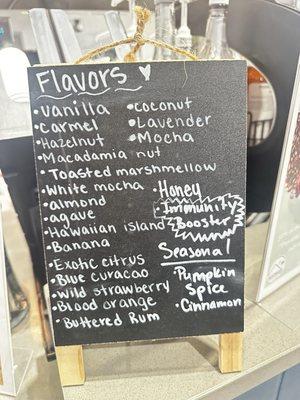 Flavors
• vanilla
• carmel
• Hazelnut
• Macadamia nut
• Toasted marshmellow
• White mocha
• almond
• agave
• Hawaiian island
• Banana
• Exotic citrus
• Blue curacao
• Wild strawberry
• Blood orange
• Buttered Rum
• coconut
• Lavender
• Mocha
• Honey
• Immunity
Booster
Seasonal
• Pumpkin
Spice
• Cinnamon